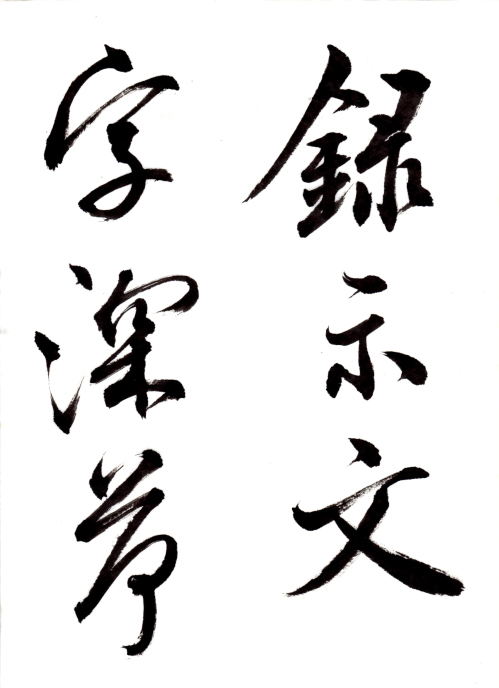 録示文
字深荷